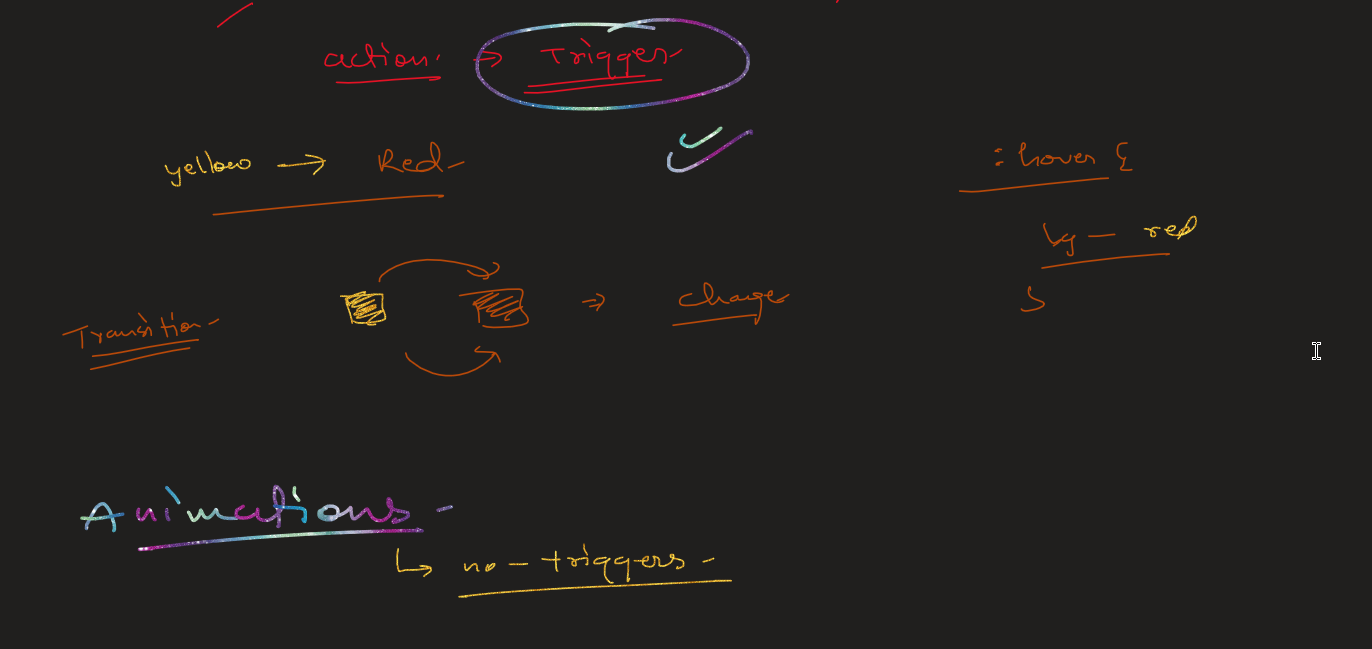 action. → Trigger
yellow → Red
: hover {
bg - red
}
Transition
⇒ change
Animations -
↳ no - triggers -